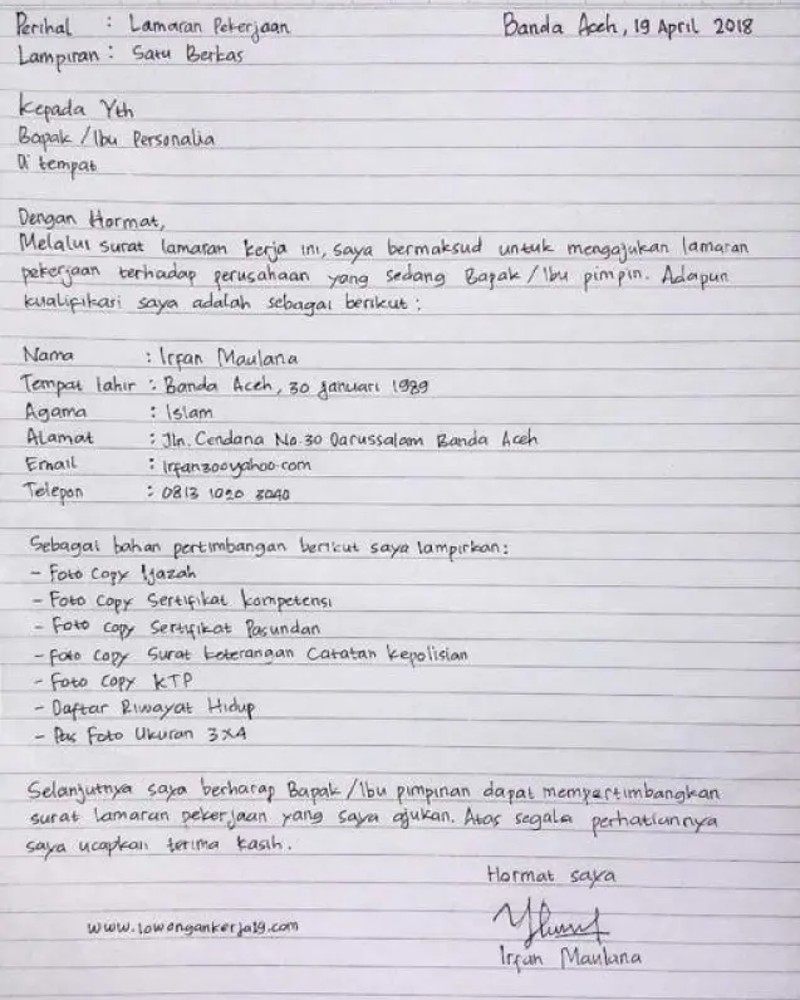 Perihal : Lamaran Pekerjaan Banda Aceh, 19 April 2018
Lampiran : Satu Berkas
Kepada Yth
Bapak / Ibu Personalia
Di tempat
Dengan Hormat,
Melalui surat lamaran kerja ini, saya bermaksud untuk mengajukan lamaran
pekerjaan terhadap perusahaan yang sedang Bapak / Ibu pimpin. Adapun
kualifikasi saya adalah sebagai berikut :
Nama : Irfan Maulana
Tempat lahir : Banda Aceh, 30 Januari 1989
Agama : Islam
Alamat : Jln. Cendana No.30 Darussalam Banda Aceh
Email : irfan300yahoo.com
Telepon : 0813 1020 3040
Sebagai bahan pertimbangan berikut saya lampirkan :
- Foto Copy Ijazah
- Foto Copy Sertifikat kompetensi
- Foto copy Sertifikat Pasundan
- Foto Copy Surat keterangan Catatan kepolisian
- Foto Copy KTP
- Daftar Riwayat Hidup
- Pas Foto Ukuran 3x4
Selanjutnya saya berharap Bapak / Ibu pimpinan dapat mempertimbangkan
surat lamaran pekerjaan yang saya ajukan. Atas segala perhatiannya
saya ucapkan terima kasih.
Hormat saya
www.lowongankerja19.com
Irfan Maulana